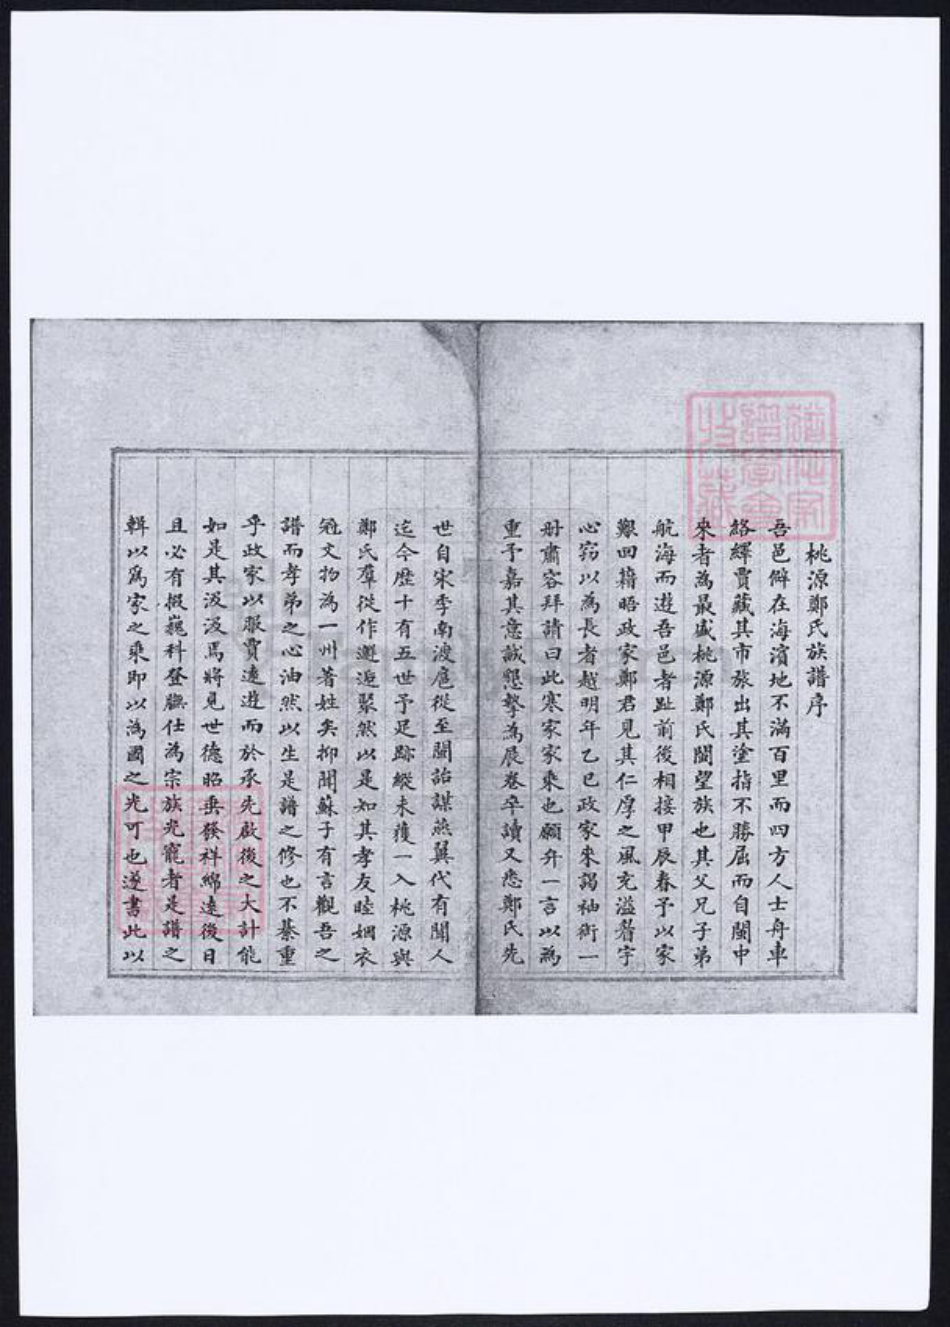 桃源鄭氏族譜序
吾邑僻在海濱地不滿百里而四方人士舟車
絡繹貫藏其市旅出其塗指不勝屈而自閩中
來者為最盛桃源鄭氏閩望族也其父兄子弟
航海而遊吾邑者趾前後相接甲辰春予以家
艱回籍晤政家鄭君見其仁厚之風充溢眉宇
心竊以為長者越明年乙巳政家來謁袖衔一
冊肅容拜請曰此寒家家乘也願弁一言以為
重予嘉其意誠懇摯為展卷卒讀又悉鄭氏先
世自宋季南渡扈從至閩詒謀燕翼代有聞人
迄今歷十有五世予足跡縱未獲一入桃源與
鄭氏羣從作邂逅聚然以是知其孝友睦婣衣
冠文物為一州著姓矣抑聞蘇子有言觀吾之
譜而孝弟之心油然以生是譜之修也不綦重
乎政家以服賈遠遊而於承先啟後之大計能
如是其汲汲焉將見世德昭垂發祥綿遠後日
且必有掇巍科登膴仕為宗族光寵者是譜之
輯以為家之乘即以為國之光可也遂書此以